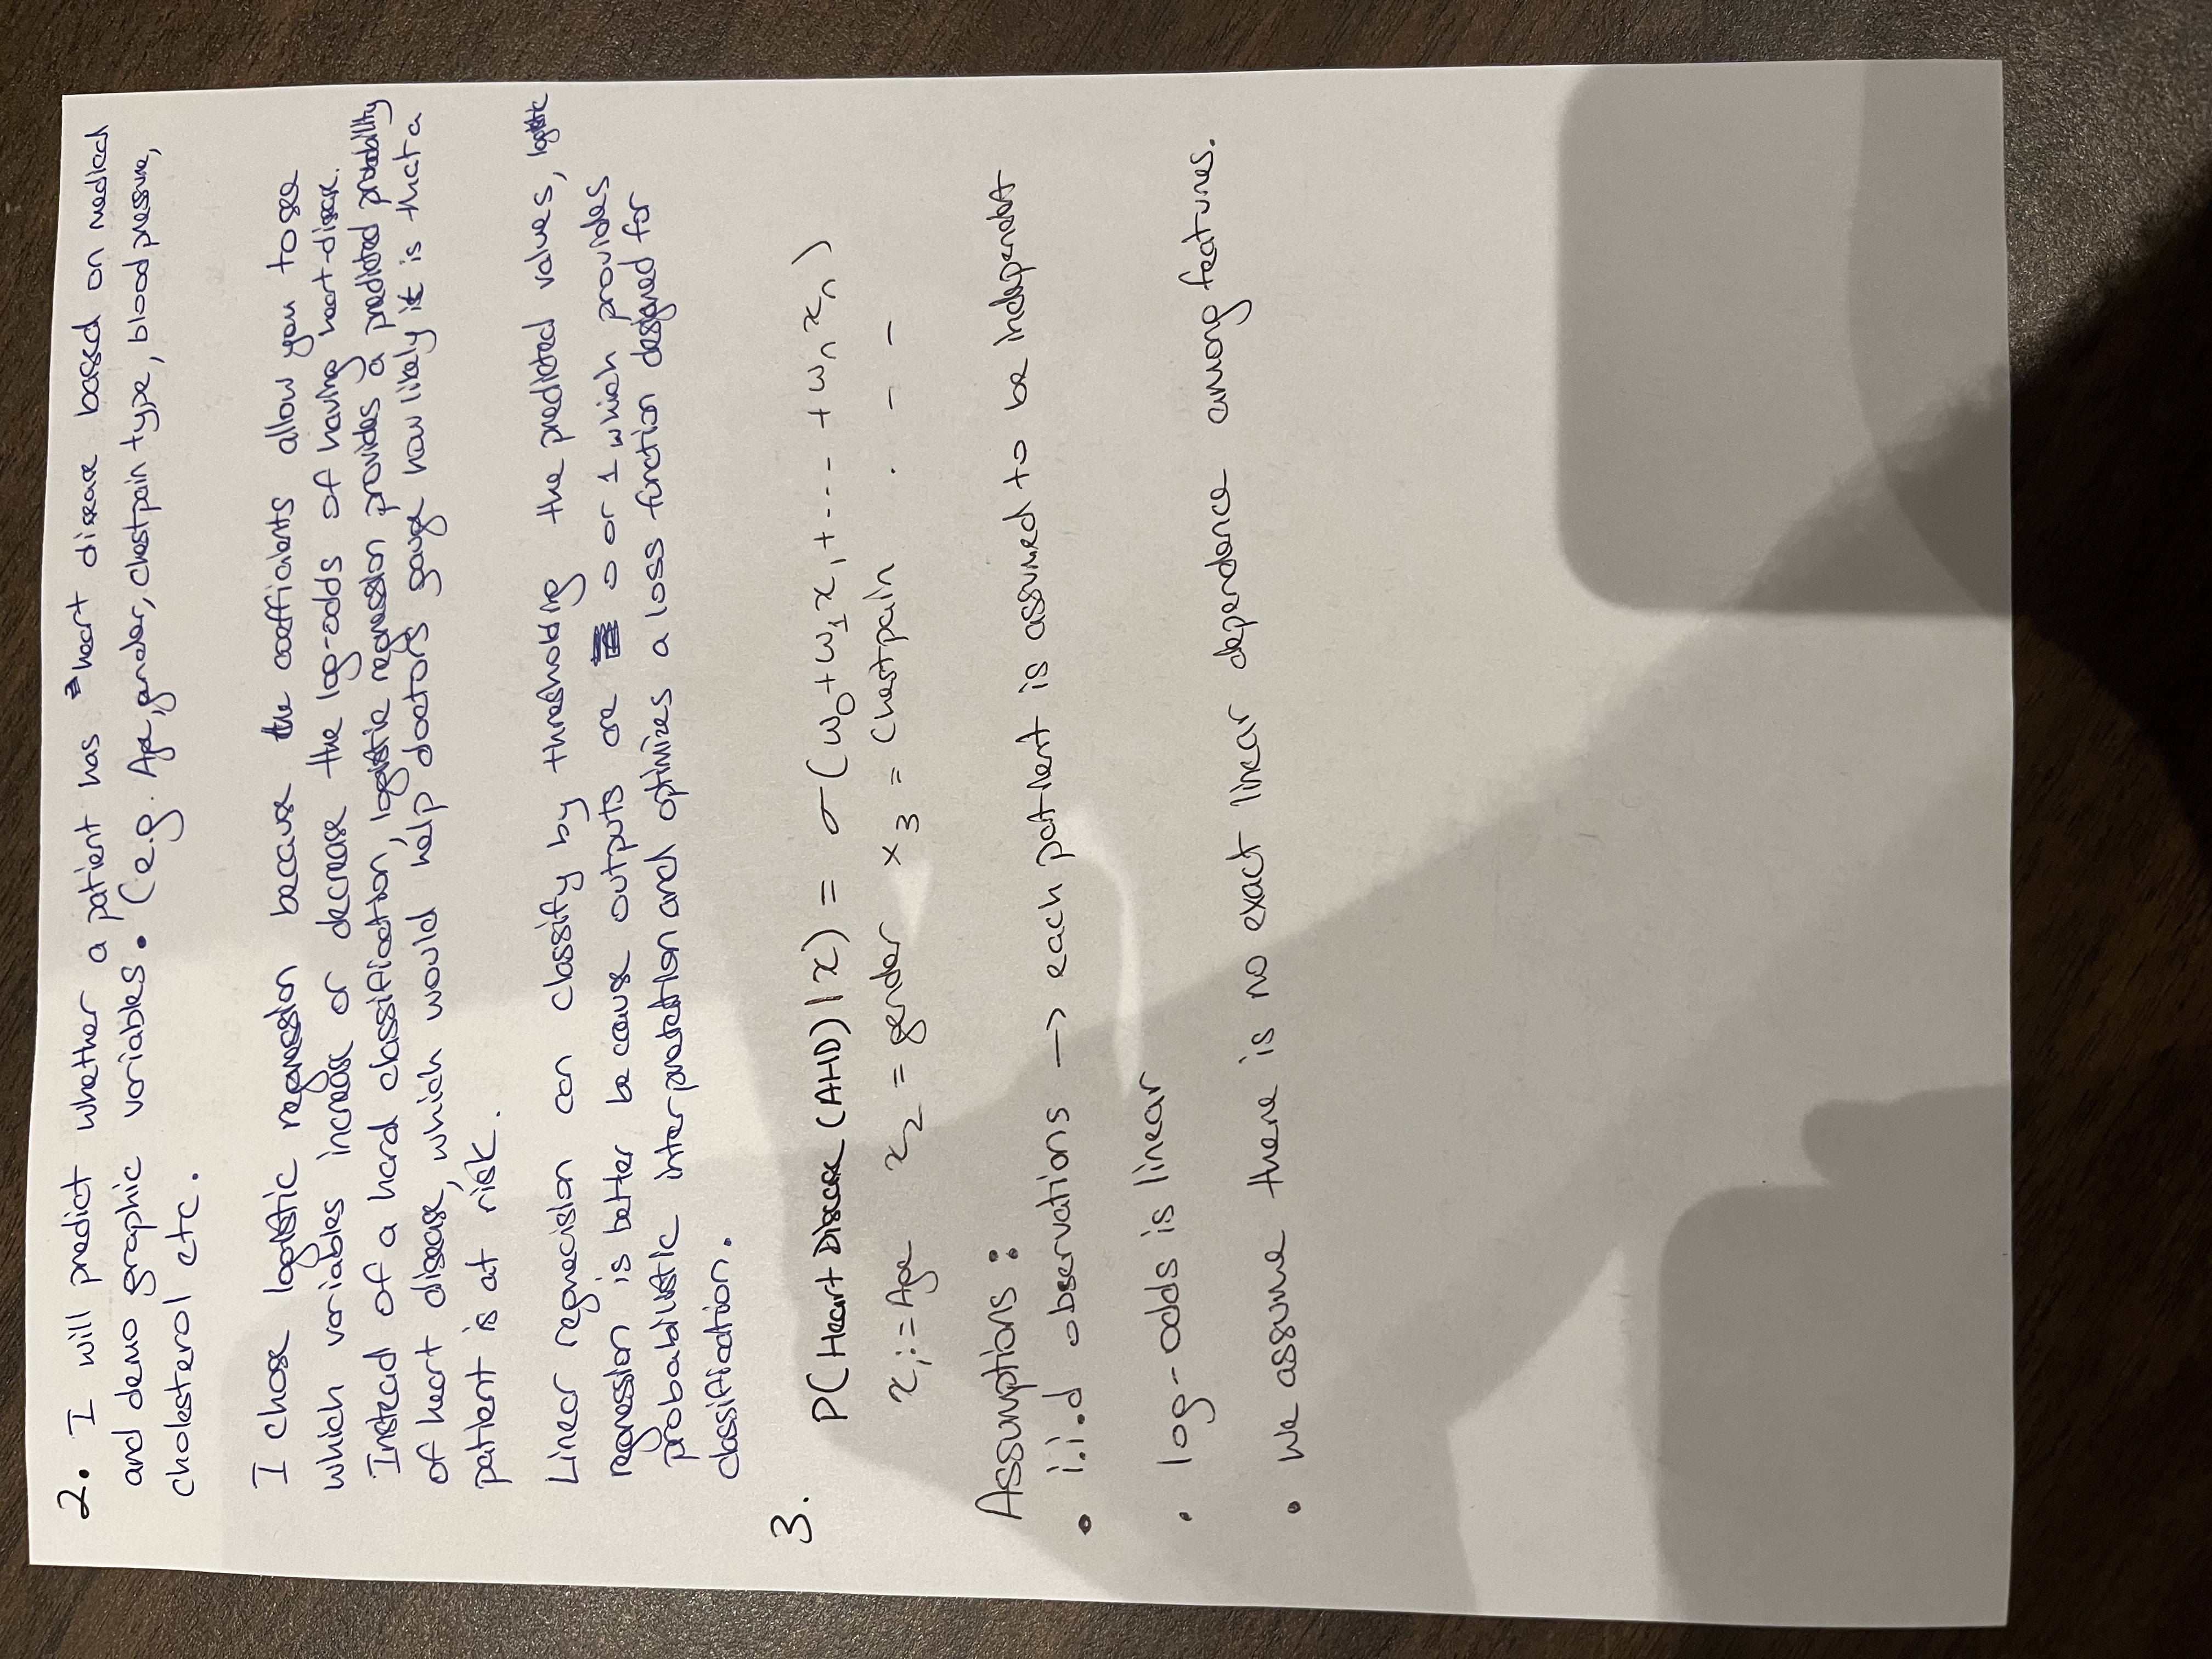 2. I will predict whether a patient has heart disease based on medical
and demo graphic variables. (e.g. Age, gender, chestpain type, blood pressure,
cholesterol etc.
I chose logistic regression because the coefficients allow you to see
which variables increase or decrease the log-odds of having heart-disease.
Instead of a hard classification, logistic regression provides a predicted probability
of heart disease, which would help doctors gauge how likely it is that a
patient is at risk.
Linear regrecision can classify by thresholding the predicted values, logistic
regression is better because outputs are 0 or 1 which provides
probabilistic interpretation and optimizes a loss function designed for
classification.
3.
P(Heart Disease (AHD) | x) = σ(w₀+w₁x₁+.... +wₙxₙ)
x₁:=Age x₂ = gender x₃ = Chestpain . - -
Assumptions :
• i.i.d observations → each patient is assumed to be independent
• log-odds is linear
• We assume there is no exact linear dependence among features.